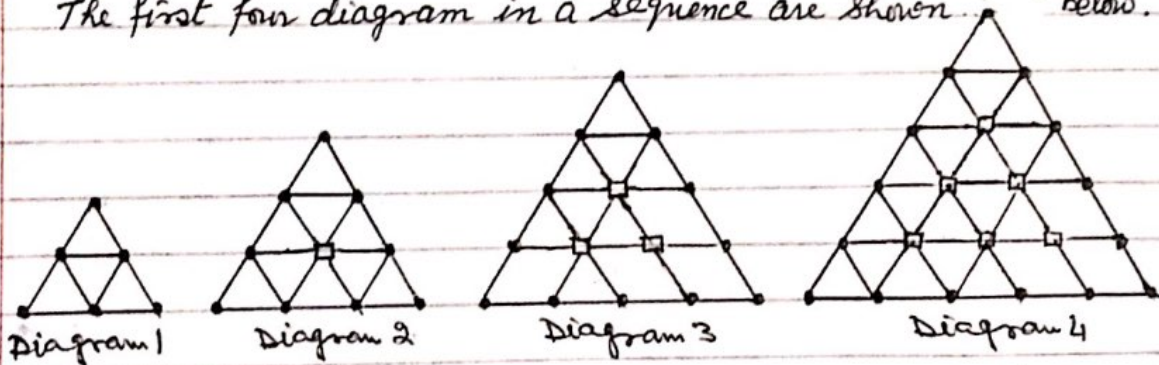 The first four diagram in a sequence are shown below.
Diagram 1 Diagram 2 Diagram 3 Diagram 4